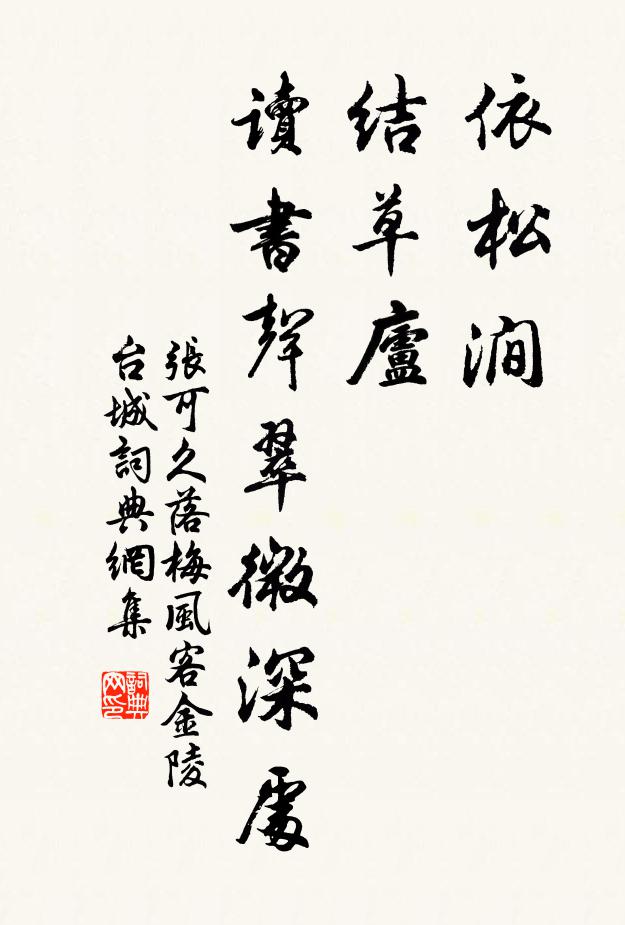 依松澗
結草廬
讀書聲翠微深處
張可久落梅風客金陵
台城詞典網集
詞典網印